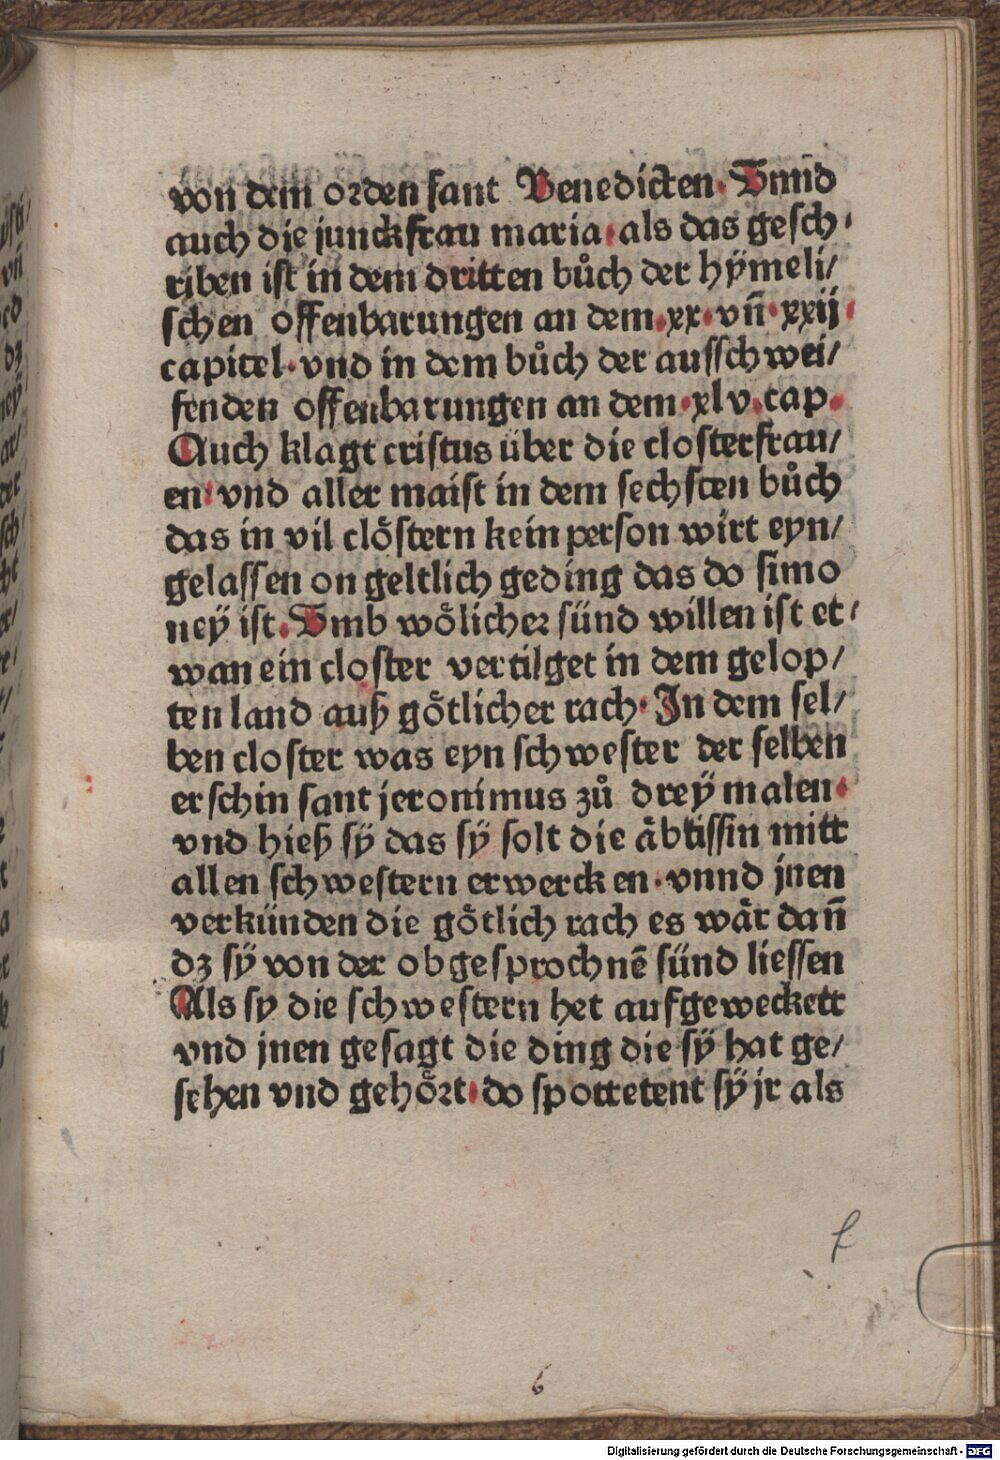 von dem orden sant Benedicten. Vnnd
auch die junckfrau maria. als das gesch·
riben ist in dem dritten bůch der hÿmeli/
schen offenbarungen an dem. xx. vn̄. xxij
capitel. vnd in dem bůch der ausschwei/
fenden offenbarungen an dem. xlv. cap.
Auch klagt cristus über die closterfrau/
en. vnd aller maist in dem sechsten bůch
das in vil clöstern kein person wirt eyn/
gelassen on geltlich geding das do simo
neÿ ist. Vmb wölicher sünd willen ist et/
wan ein closter vertilget in dem gelop/
ten land auß götlicher rach. In dem sel/
ben closter was eyn schwester der selben
erschin sant jeronimus zů dreÿ malen.
vnd hieß sÿ das sÿ solt die äbtissin mitt
allen schwestern erwercken. vnnd jnen
verkünden die götlich rach es wär dan̄
dz sÿ von der obgesprochnē sünd liessen
Als sy die schwestern het aufgeweckett
vnd jnen gesagt die ding die sÿ hat ge/
sehen vnd gehört. do spottetent sÿ jr als
6
Digitalisierung gefördert durch die Deutsche Forschungsgemeinschaft - DFG